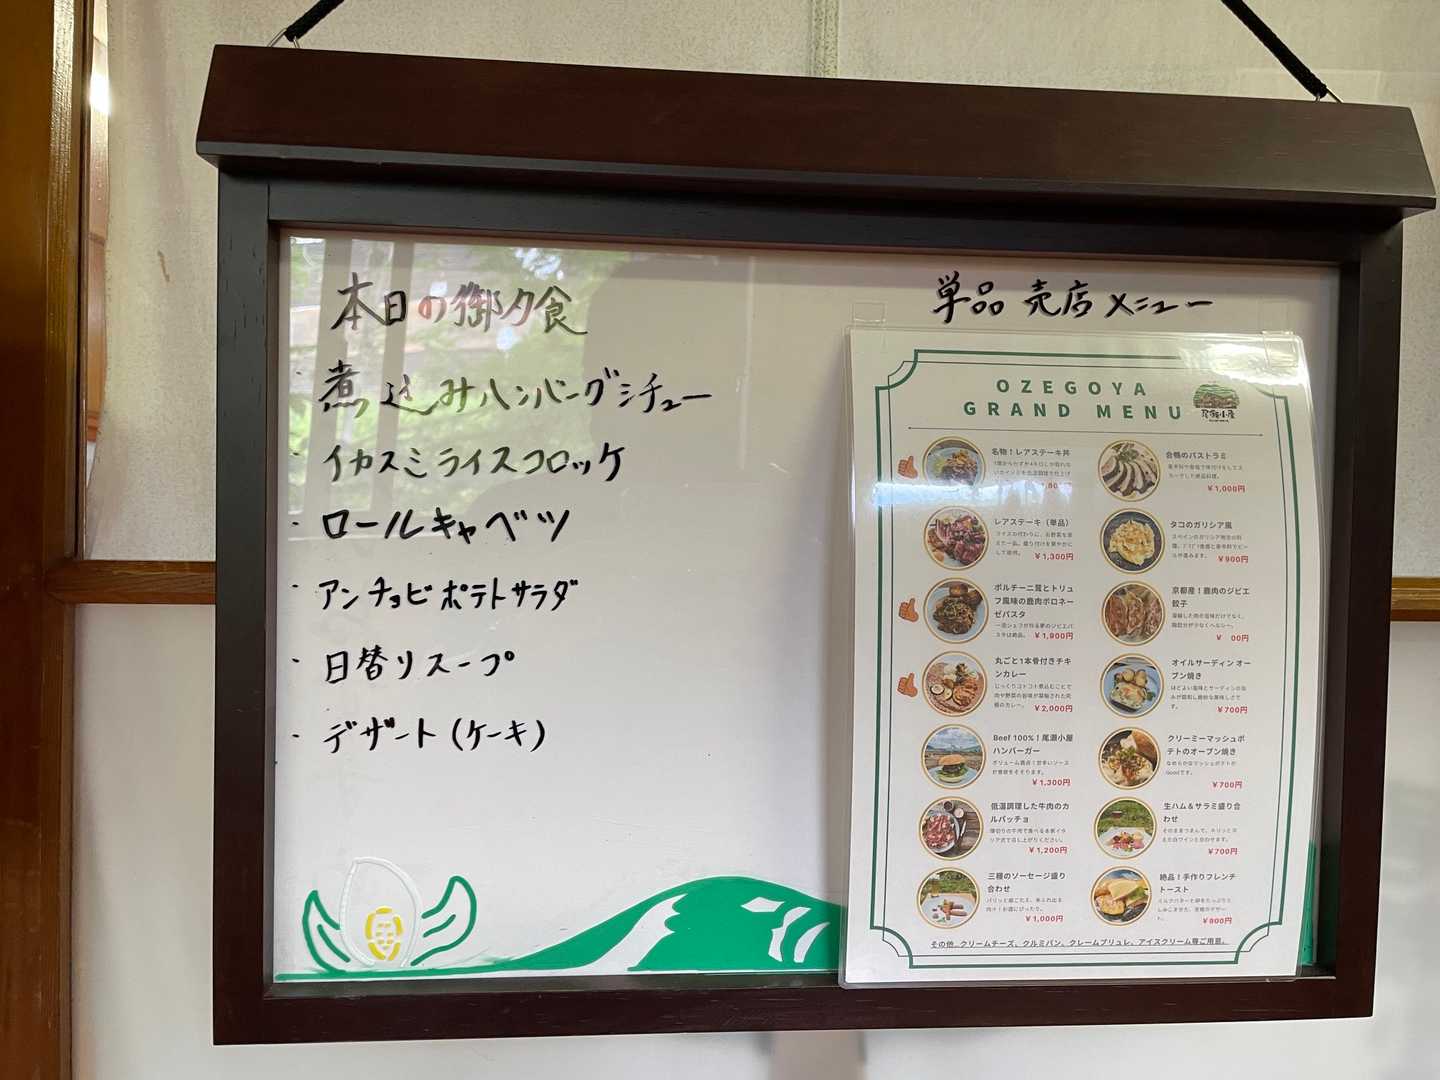 本日の御夕食
・煮込みハンバーグシチュー
・イカスミライスコロッケ
・ロールキャベツ
・アンチョビポテトサラダ
・日替りスープ
・デザート(ケーキ)
単品 売店メニュー
OZEGOYA
GRAND MENU
尾瀬小屋
名物！レアステーキ丼
レアステーキ（単品）
¥1,300円
ポルチーニ茸とトリュ
フ風味の鹿肉ボロネー
ゼパスタ
¥1,900円
丸ごと1本骨付きチキ
ンカレー
¥2,000円
Beef 100%！尾瀬小屋
ハンバーガー
¥1,300円
低温調理した牛肉のカ
ルパッチョ
¥1,200円
三種のソーセージ盛り
合わせ
¥1,000円
合鴨のパストラミ
¥1,000円
タコのガリシア風
¥900円
京都産！鹿肉のジビエ
餃子
¥ 00円
オイルサーディン オー
ブン焼き
¥700円
クリーミーマッシュポ
テトのオーブン焼き
なめらかなマッシュポテトが
Goodです。
¥700円
生ハム＆サラミ盛り合
わせ
¥700円
絶品！手作りフレンチ
トースト
¥900円
その他…クリームチーズ、クルミパン、クレームブリュレ、アイスクリーム等ご用意。